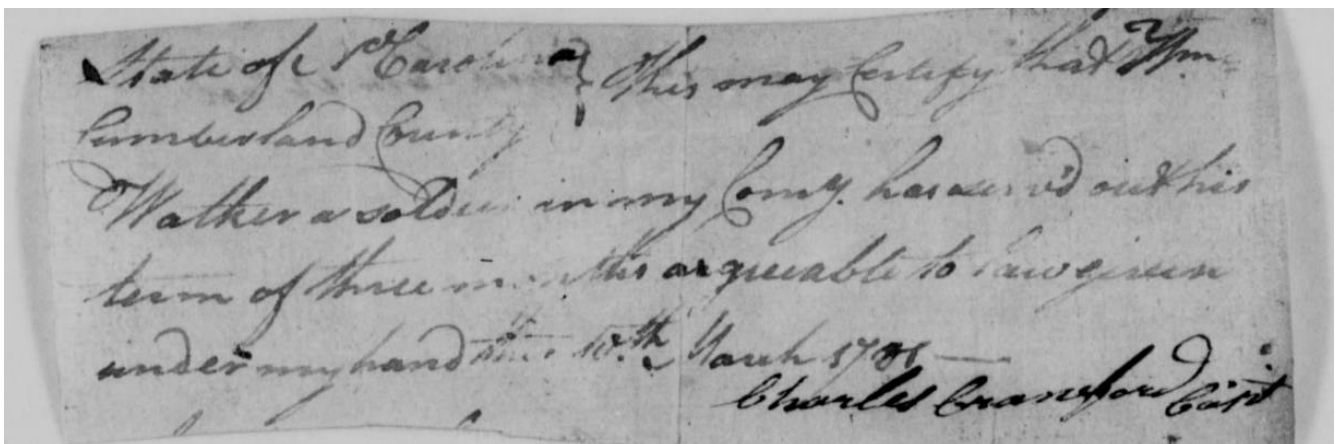 State of N Carolina } This may Certify that Wm
Cumberland County
Walker a soldier in my Comy. has serv'd out his
term of three months agreeable to law given
under my hand this 10th March 1781
Charles Crawford Capt